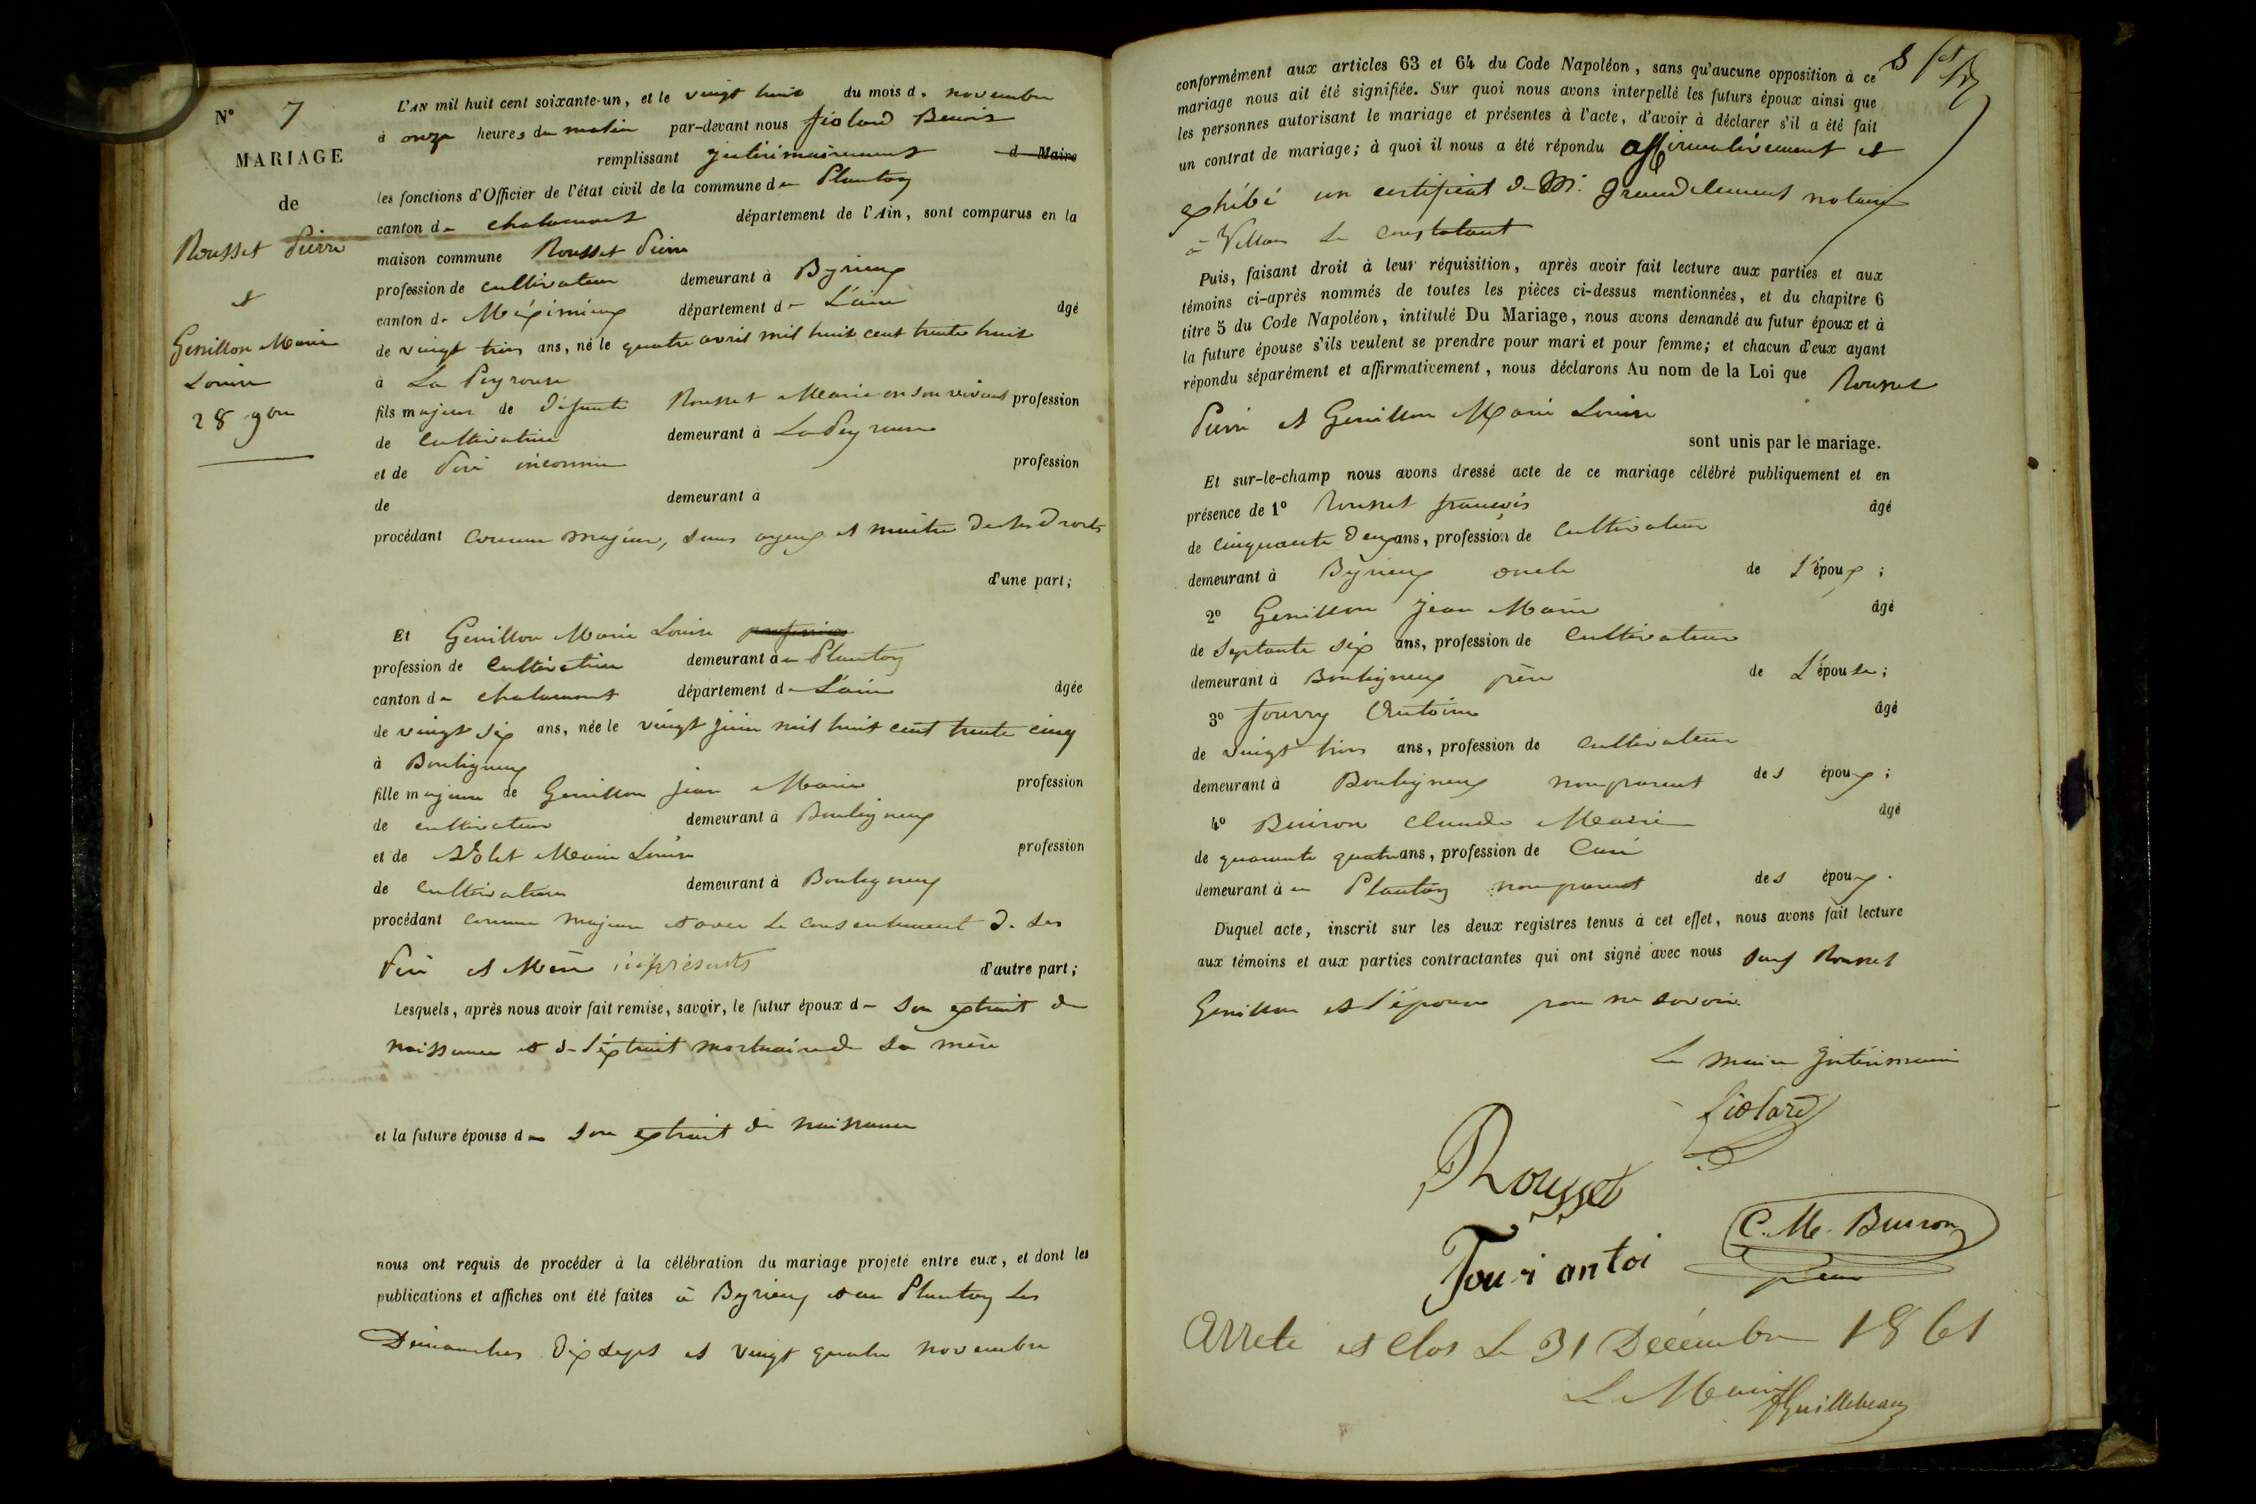 N° 7
MARIAGE
de
Rousset Pierre
et
Genillon Marie
Louise
28 9bre
L'AN mil huit cent soixante-un, et le vingt huit du mois de novembre
à onze heures du matin par-devant nous fiolard Benoit
remplissant intérimairement d Maire
les fonctions d'Officier de l'état civil de la commune de Plantay
canton de chalamont département de l'Ain, sont comparus en la
maison commune Rousset Pierre
profession de cultivateur demeurant à Byrieux
canton de Méximieux département de L'ain âgé
de vingt trois ans, né le quatre avril mil huit cent trente huit
à La Peyrouse
fils majeur de défunte Rousset Marie en son vivant profession
de cultivatrice demeurant à La Peyrouse
et de Père inconnu profession
de demeurant à
procédant comme majeur, sans ayeux et maître de ses droits
d'une part;
Et Genillon Marie Louise profession
profession de cultivatrice demeurant au Plantay
canton de chalamont département de L'ain âgée
de vingt six ans, née le vingt juin mil huit cent trente cinq
à Bouligneux
fille majeure de Genillon jean Marie profession
de cultivateur demeurant à Bouligneux
et de Marie Louise profession
de cultivatrice demeurant à Bouligneux
procédant comme majeure et avec le consentement de ses
Père et Mère ici présents d'autre part;
Lesquels, après nous avoir fait remise, savoir, le futur époux de son extrait de
naissance et de l'éxtrait mortuaire de sa mère
et la future épouse de son extrait de naissance
nous ont requis de procéder à la célébration du mariage projeté entre eux, et dont les
publications et affiches ont été faites à Byrieux et au Plantay les
Dimanches dix sept et vingt quatre novembre
conformément aux articles 63 et 64 du Code Napoléon, sans qu'aucune opposition à ce
mariage nous ait été signifiée. Sur quoi nous avons interpellé les futurs époux ainsi que
les personnes autorisant le mariage et présentes à l'acte, d'avoir à déclarer s'il a été fait
un contrat de mariage; à quoi il nous a été répondu affirmativement et
exhibé un certificat de Mr. grandclement notaire
à Villars le constatant
Puis, faisant droit à leur réquisition, après avoir fait lecture aux parties et aux
témoins ci-après nommés de toutes les pièces ci-dessus mentionnées, et du chapitre 6
titre 5 du Code Napoléon, intitulé Du Mariage, nous avons demandé au futur époux et à
la future épouse s'ils veulent se prendre pour mari et pour femme; et chacun d'eux ayant
répondu séparément et affirmativement, nous déclarons Au nom de la Loi que Rousset
Pierre et Genillon Marie Louise
sont unis par le mariage.
Et sur-le-champ nous avons dressé acte de ce mariage célébré publiquement et en
présence de 1° Rousset françois âgé
de cinquante deux ans, profession de cultivateur
demeurant à Byrieux oncle de L'époux;
2° Genillon jean Marie âgé
de septante six ans, profession de cultivateur
demeurant à Bouligneux père de L'épouse;
3° fourry Antoine âgé
de vingt trois ans, profession de cultivateur
demeurant à Bouligneux non parent des époux;
4° Buiron claude Marie âgé
de quarante quatre ans, profession de Curé
demeurant au Plantay non parent des époux.
Duquel acte, inscrit sur les deux registres tenus à cet effet, nous avons fait lecture
aux témoins et aux parties contractantes qui ont signé avec nous sauf Rousset
Genillon et l'épouse pour ne savoir.
Le maire intérimaire
fiolard
Rousset
C. M. Buiron
Fouri antoi
Arreté et clos le 31 Décémbre 1861
Le Maire